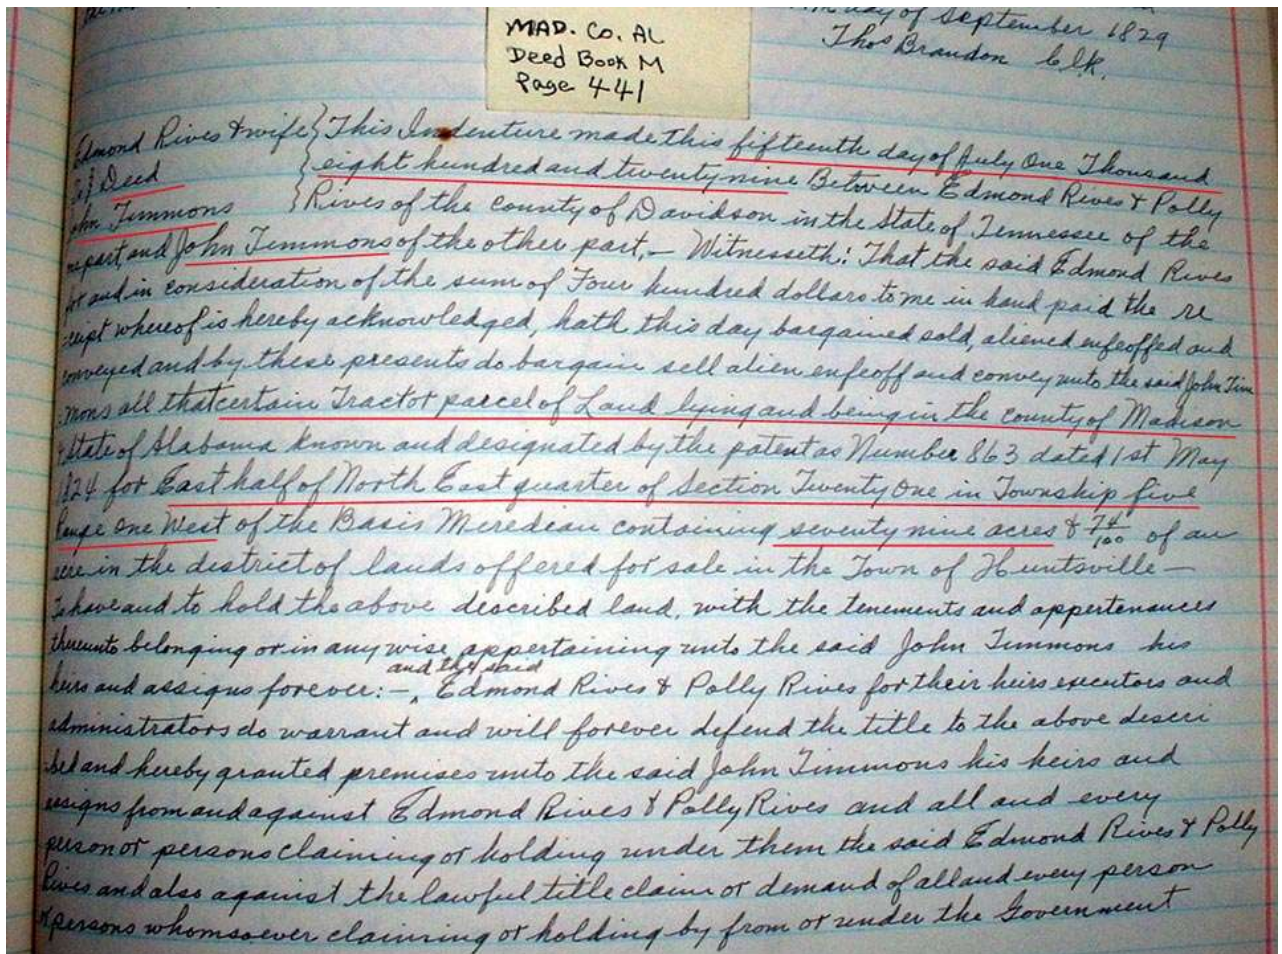 day of September 1829
Thos Brandon Clk.
MAD. Co. AL
Deed Book M
Page 441
Edmond Rives & wife } This Indenture made this fifteenth day of July One Thousand
To } Deed } eight hundred and twenty nine Between Edmond Rives & Polly
John Timmons } Rives of the county of Davidson in the State of Tennessee of the
one part, and John Timmons of the other part, — Witnesseth: That the said Edmond Rives
for and in consideration of the sum of Four hundred dollars to me in hand paid the re
=ceipt whereof is hereby acknowledged, hath this day bargained sold, aliened enfeoffed and
conveyed and by these presents do bargain sell alien enfeoff and convey unto the said John Tim
=mons all that certain Tract or parcel of Land lying and being in the county of Madison
& State of Alabama known and designated by the patent as Number 863 dated 1st May
1824 for East half of North East quarter of Section Twenty One in Township five
Range One West of the Basis Meredian containing seventy nine acres & 74/100 of an
acre in the district of lands offered for sale in the Town of Huntsville —
To have and to hold the above described land, with the tenements and appertenances
thereunto belonging or in any wise appertaining unto the said John Timmons his
and the said
heirs and assigns forever: — ‸ Edmond Rives & Polly Rives for their heirs executors and
administrators do warrant and will forever defend the title to the above descri
=bed and hereby granted premises unto the said John Timmons his heirs and
assigns from and against Edmond Rives & Polly Rives and all and every
person or persons claiming or holding under them the said Edmond Rives & Polly
Rives and also against the lawful title claim or demand of all and every person
or persons whomsoever claiming or holding by from or under the Government